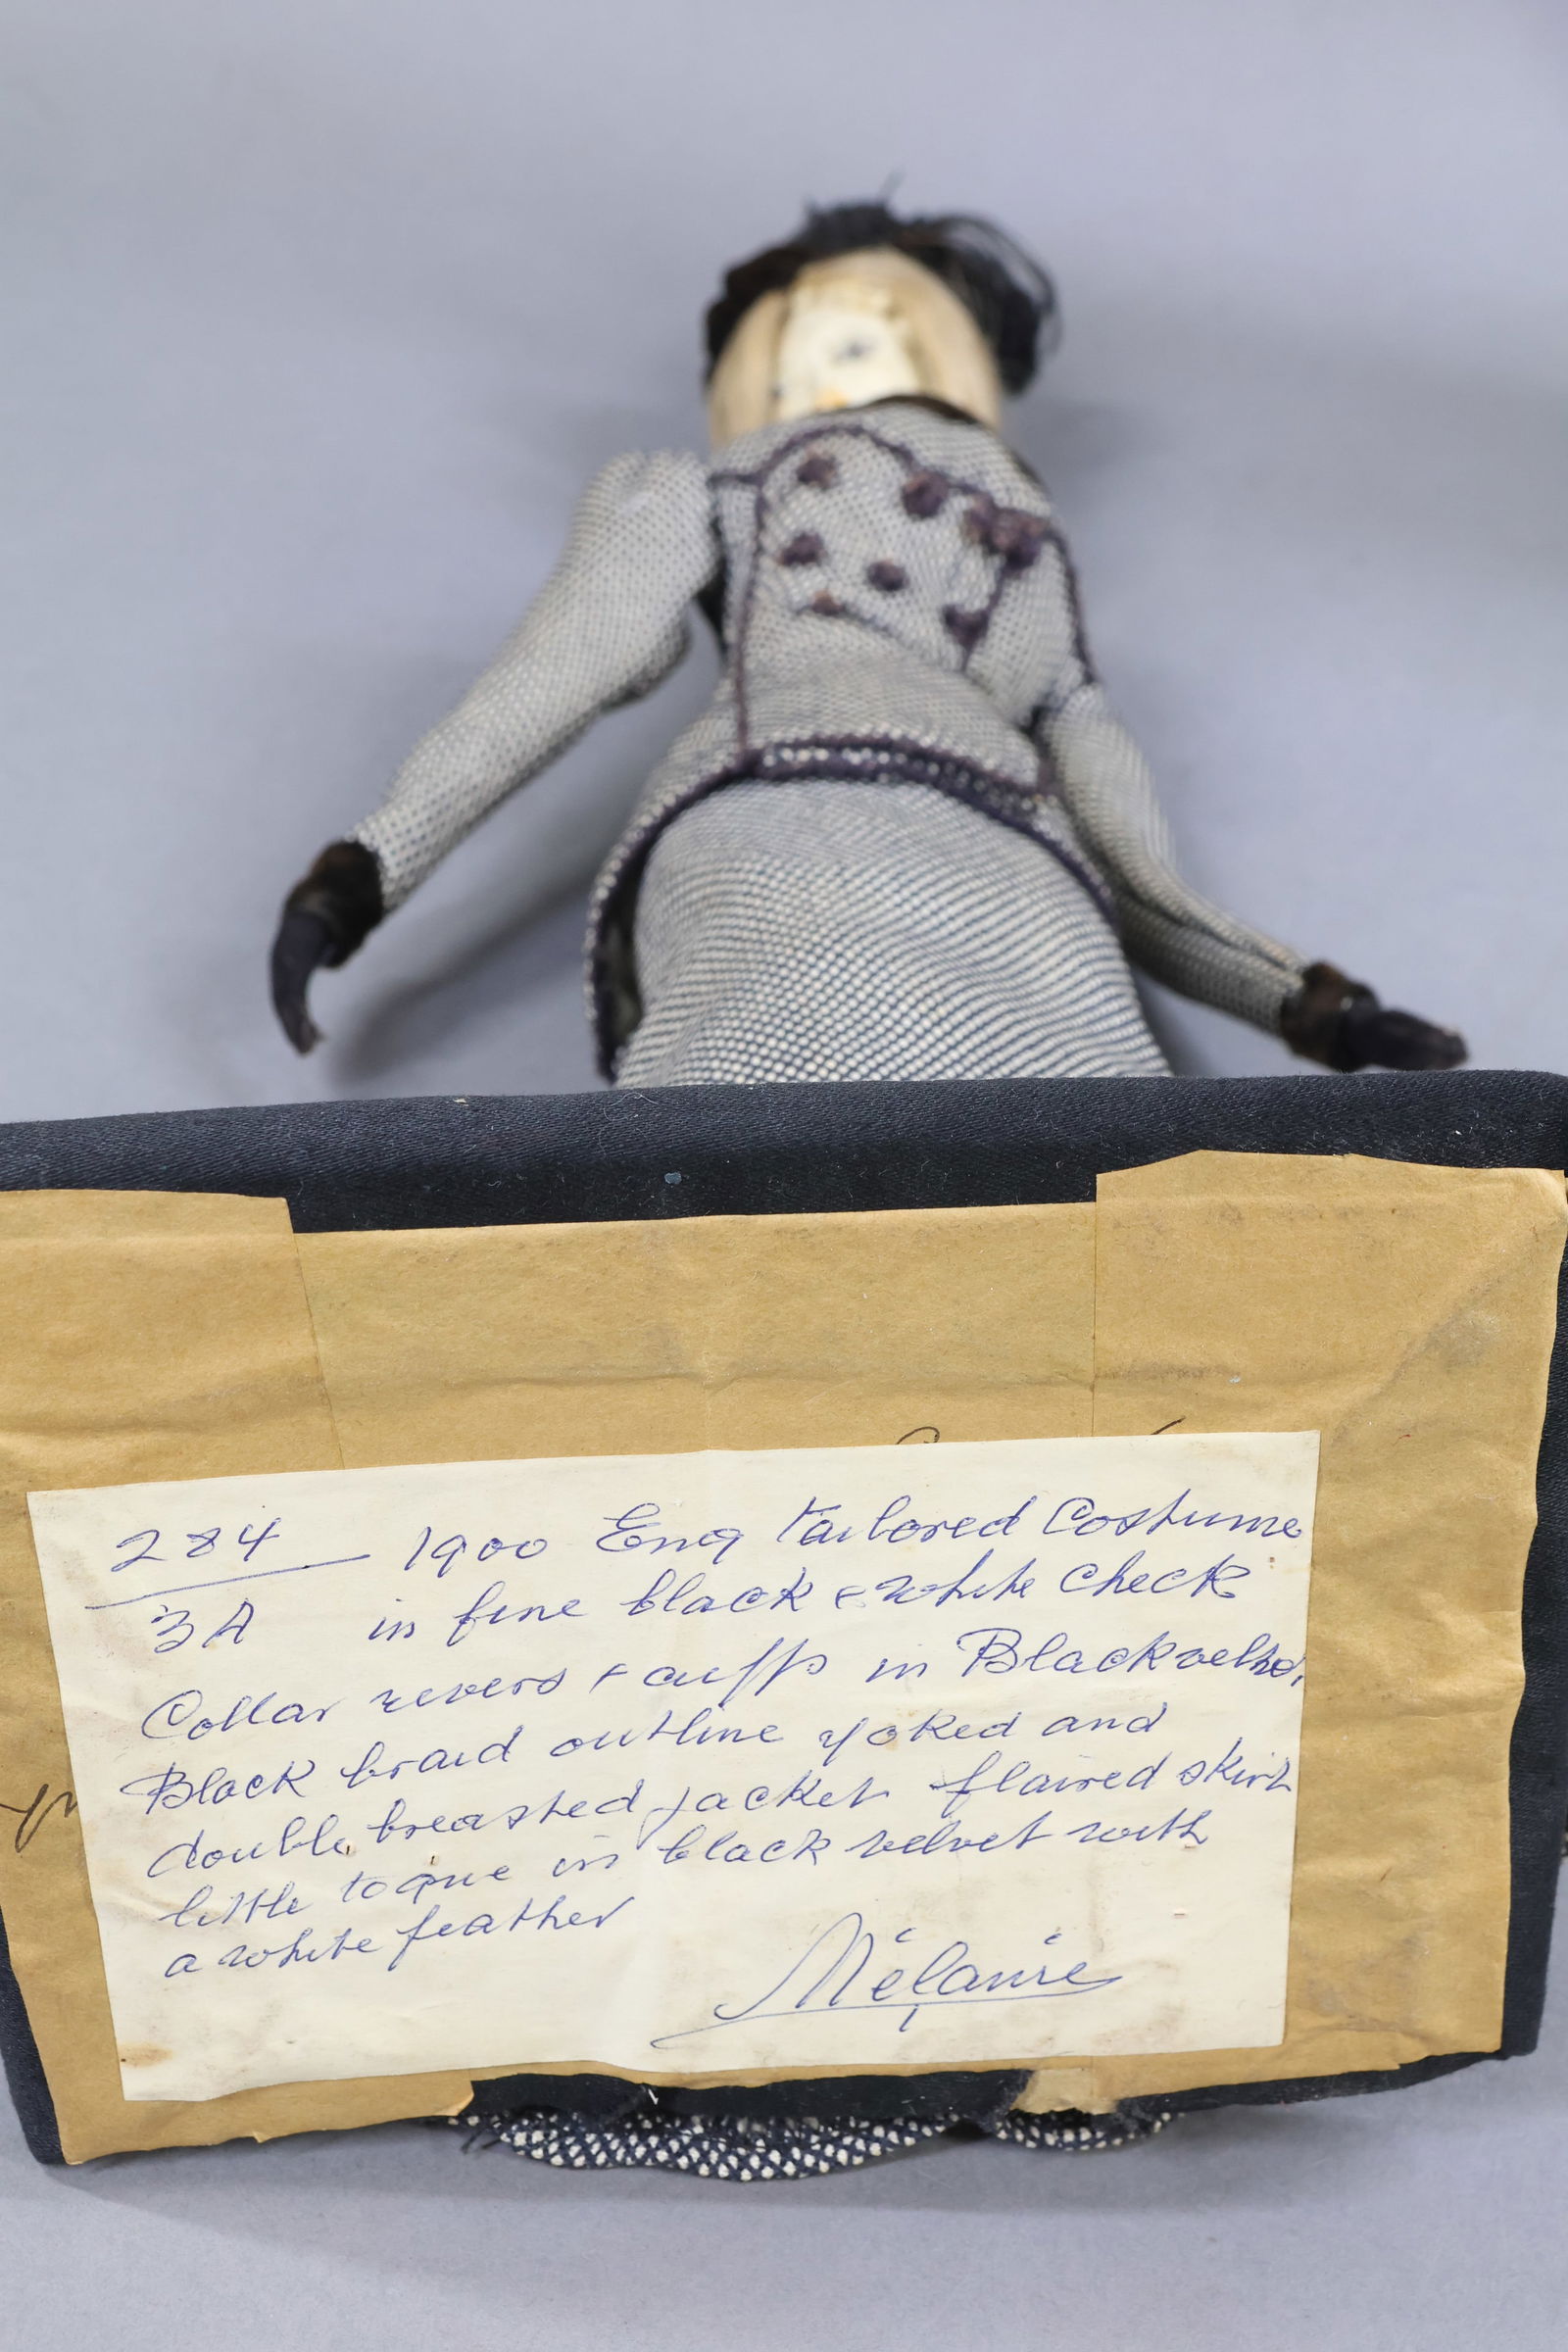 284 1900 Eng Tailored Costume
3A in fine black & white check
Collar revers + cuffs in Black velvet,
Black braid outline yoked and
double breasted jacket flaired skirt
little toque in black velvet with
a white feather
Mélanie